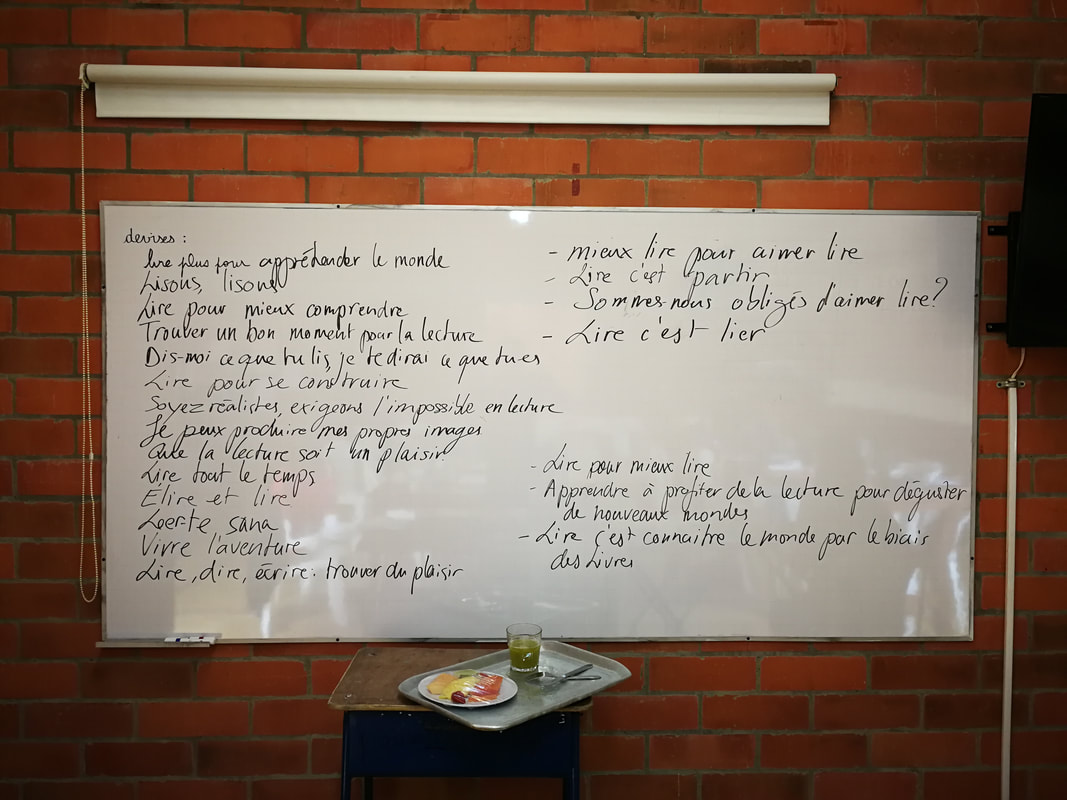 devises :
lire plus pour appréhender le monde
Lisons, lisons
Lire pour mieux comprendre
Trouver un bon moment pour la lecture
Dis-moi ce que tu lis, je te dirai ce que tu es
Lire pour se construire
Soyez réalistes, exigeons l'impossible en lecture
Je peux produire mes propres images
Que la lecture soit un plaisir
Lire tout le temps
Élire et lire
sana
Vivre l'aventure
Lire, dire, écrire : trouver du plaisir
- mieux lire pour aimer lire
- Lire c'est partir
- Sommes-nous obligés d'aimer lire?
- Lire c'est lier
- Lire pour mieux lire
- Apprendre à profiter de la lecture pour déguster
de nouveaux mondes
- Lire c'est connaitre le monde par le biais
des Livres